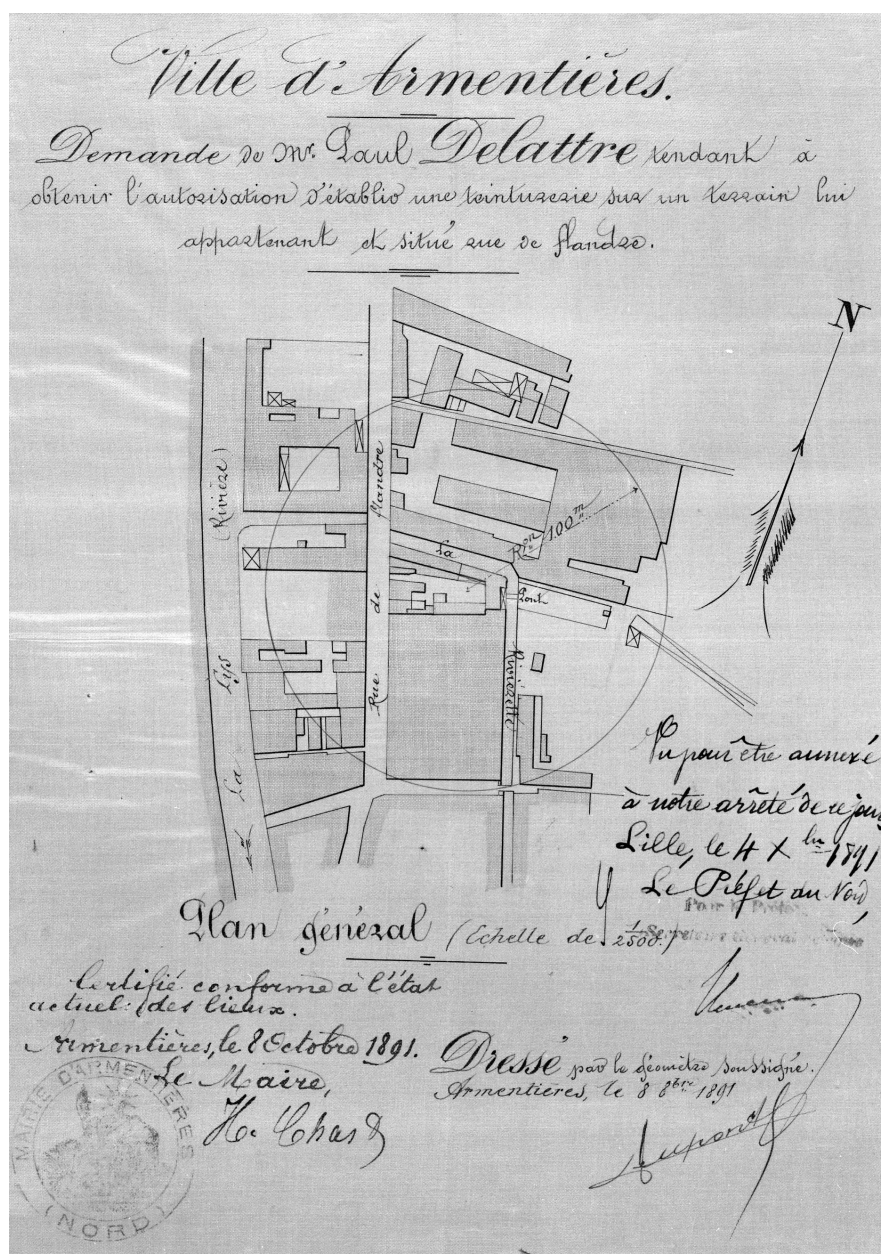 Ville d'Armentières.
Demande de Mr. Paul Delattre tendant à
obtenir l'autorisation d'établir une teinturerie sur un terrain lui
appartenant et situé rue de flandre.
N
(Rivière)
La Lys
Rue de flandre
Ron 100m
La
Pont
Rivièrette
Vu pour être annexé
à notre arrêté de ce jour
Lille, le 4 Xbre 1891
Le Préfet du Nord,
Pour le Préfet
Plan général (Echelle de 1/2500.)
Certifié conforme à l'état
actuel des lieux.
Armentières, le 8 Octobre 1891.
Le Maire,
H. Chas
Dressé par le géomètre soussigné.
Armentières, le 8 8bre 1891
Dupont
MAIRIE D'ARMENTIÈRES
(NORD)